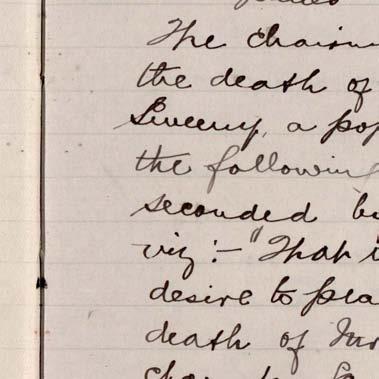 The Chairm
the death of
Sweeny, a pop
the following
seconded by
viz :- "That i
desire to pla
death of Mr